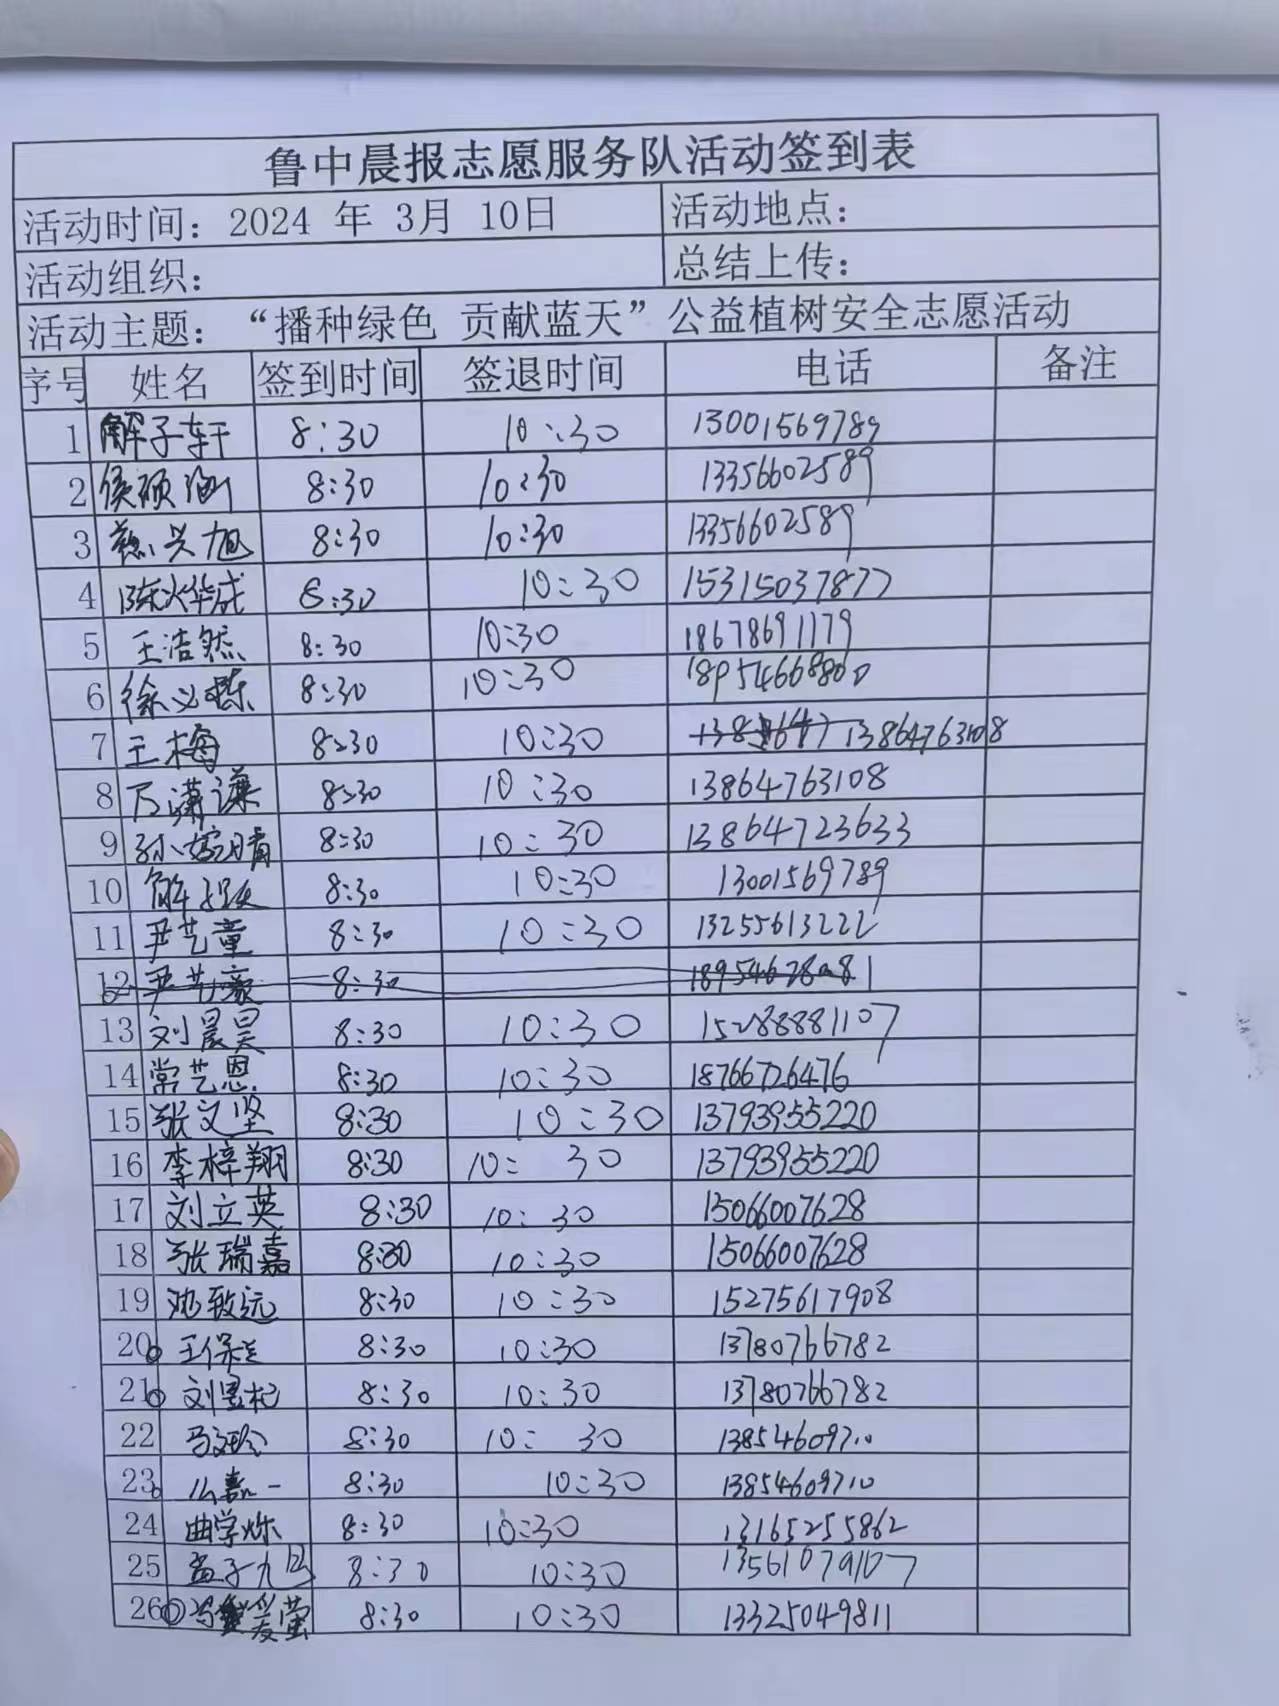 鲁中晨报志愿服务队活动签到表
活动时间：2024 年 3月 10日 活动地点：
活动组织： 总结上传：
活动主题：“播种绿色 贡献蓝天”公益植树安全志愿活动
序号 姓名 签到时间 签退时间 电话 备注
1 解子轩 8:30 10:30 13001569789
2 侯硕涵 8:30 10:30 13356602589
3 蔡兴旭 8:30 10:30 13356602589
4 陈烨成 8:30 10:30 15315037877
5 王浩然 8:30 10:30 18678691179
6 徐义 8:30 10:30 18954668800
7 王梅 8:30 10:30 13864763108
8 万潇谦 8:30 10:30 13864763108
9 孙婉晴 8:30 10:30 13864723633
10 解 8:30 10:30 13001569789
11 尹艺童 8:30 10:30 13255613222
12 尹艺豪 8:30
13 刘晨昊 8:30 10:30 15288881107
14 常艺恩 8:30 10:30 18766726476
15 张文坚 8:30 10:30 13793955220
16 李梓翔 8:30 10:30 13793955220
17 刘立英 8:30 10:30 15066007628
18 张瑞嘉 8:30 10:30 15066007628
19 致远 8:30 10:30 15275617908
20 王保 8:30 10:30 13780766782
21 刘昱杞 8:30 10:30 13780766782
22 马 8:30 10:30 13854609710
23 么嘉一 8:30 10:30 13854609710
24 曲学烁 8:30 10:30 13165255862
25 孟子 8:30 10:30 13561079107
26 冯 萤 8:30 10:30 13325049811